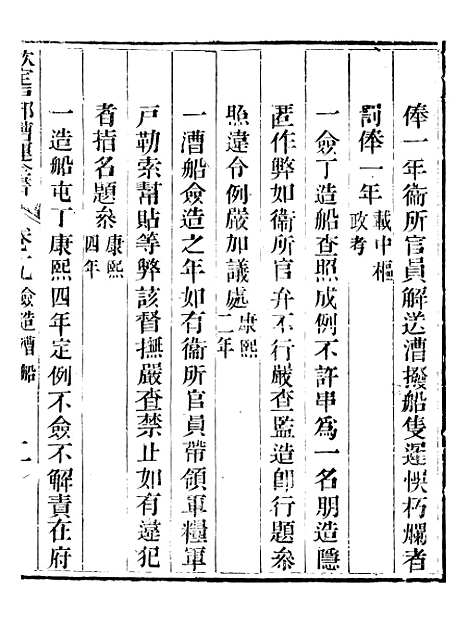 俸一年衞所官員解送漕撥船隻遲悞朽爛者
罰俸一年載中樞政考
一僉丁造船查照成例不許串為一名朋造隱
匿作弊如衞所官弁不行嚴查監造卽行題叅
照違令例嚴加議處康熙二年
一漕船僉造之年如有衞所官員帶領軍糧軍
戸勒索幫貼等弊該督撫嚴查禁止如有違犯
者指名題叅康熙四年
一造船屯丁康熙四年定例不僉不解責在府
欽定戸部漕運全書 卷十九 僉造漕船 二